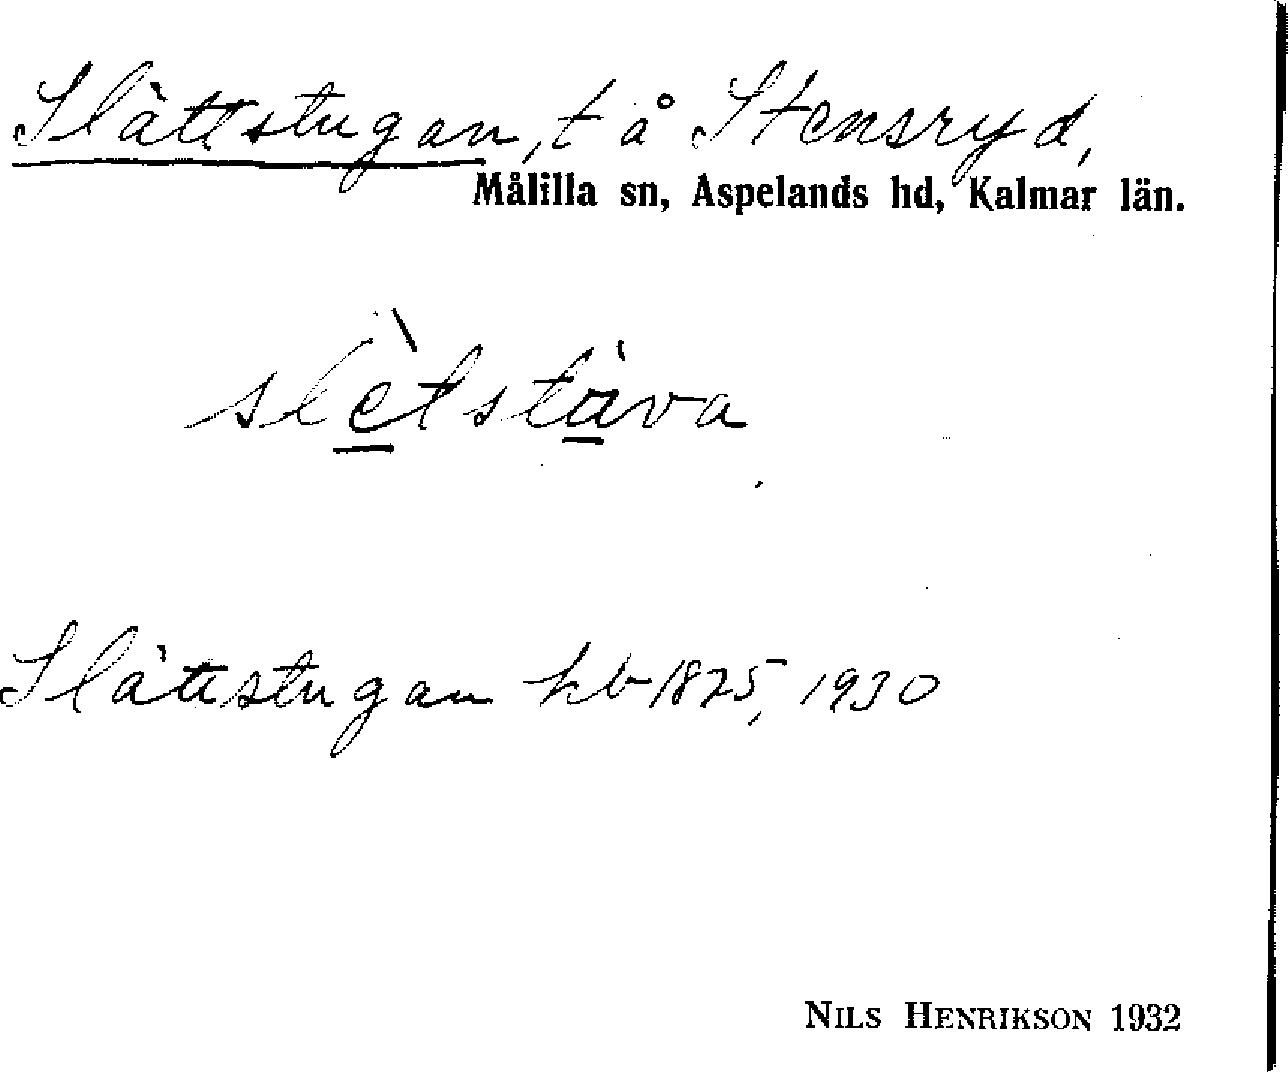 Slättstugan, t å Stensryd,
Målilla sn, Aspelands hd, Kalmar län.
slètstàva
Slättstugan hb 1825, 1930
NILS HENRIKSON 1932